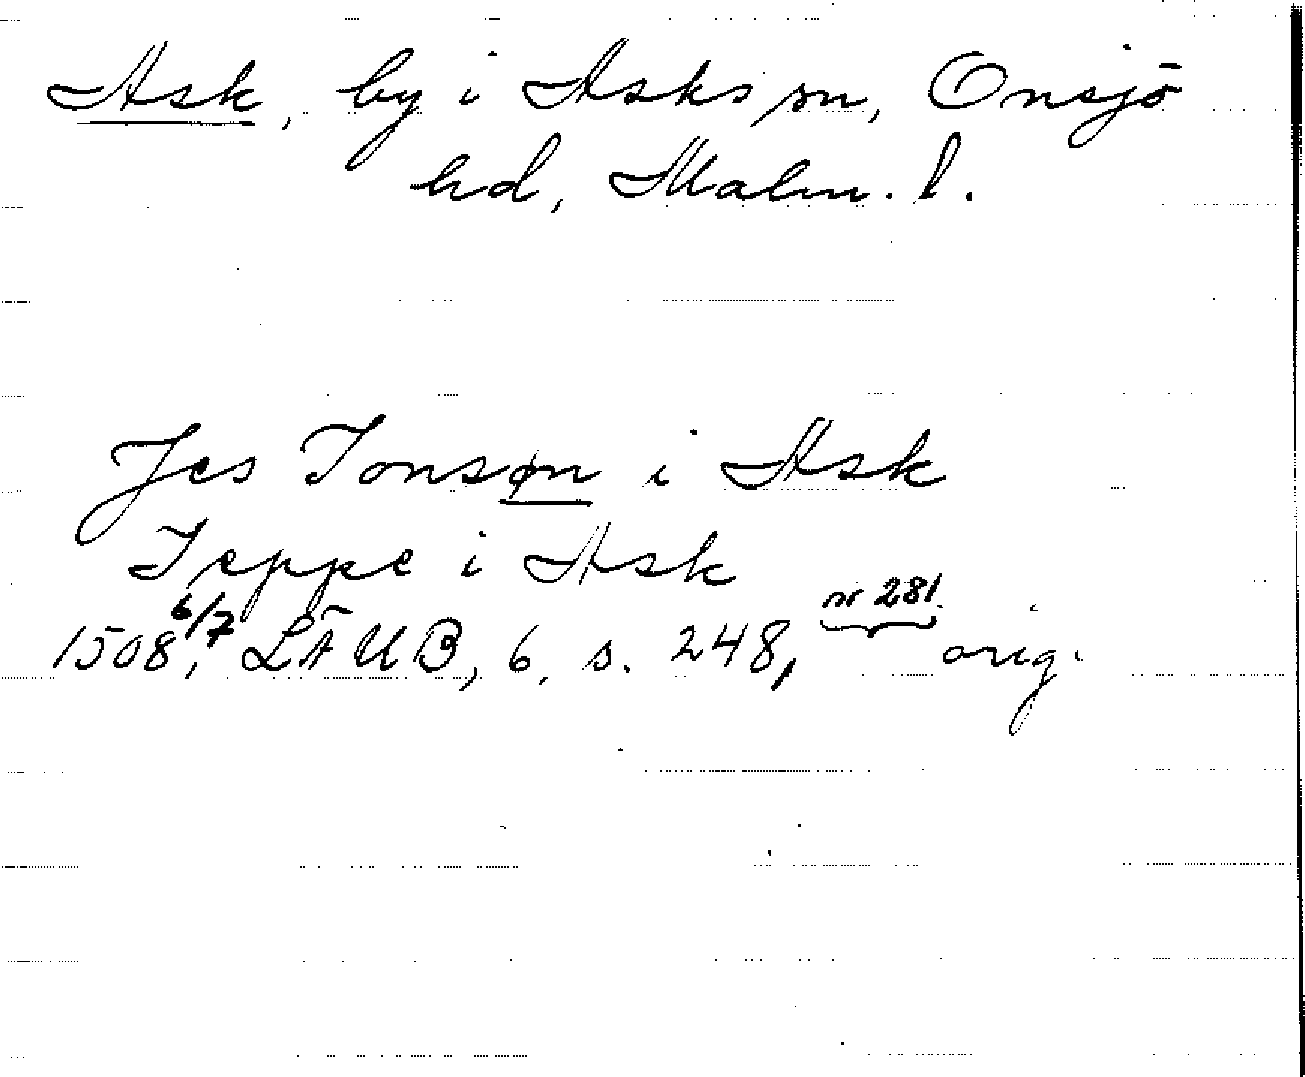 Ask, by i Asks sn, Onsjö
hd, Malm. l.
Jes Jonsøn i Ask
Jeppe i Ask
1508 6/7, LÄUB, 6, s. 248, nr 281 orig.